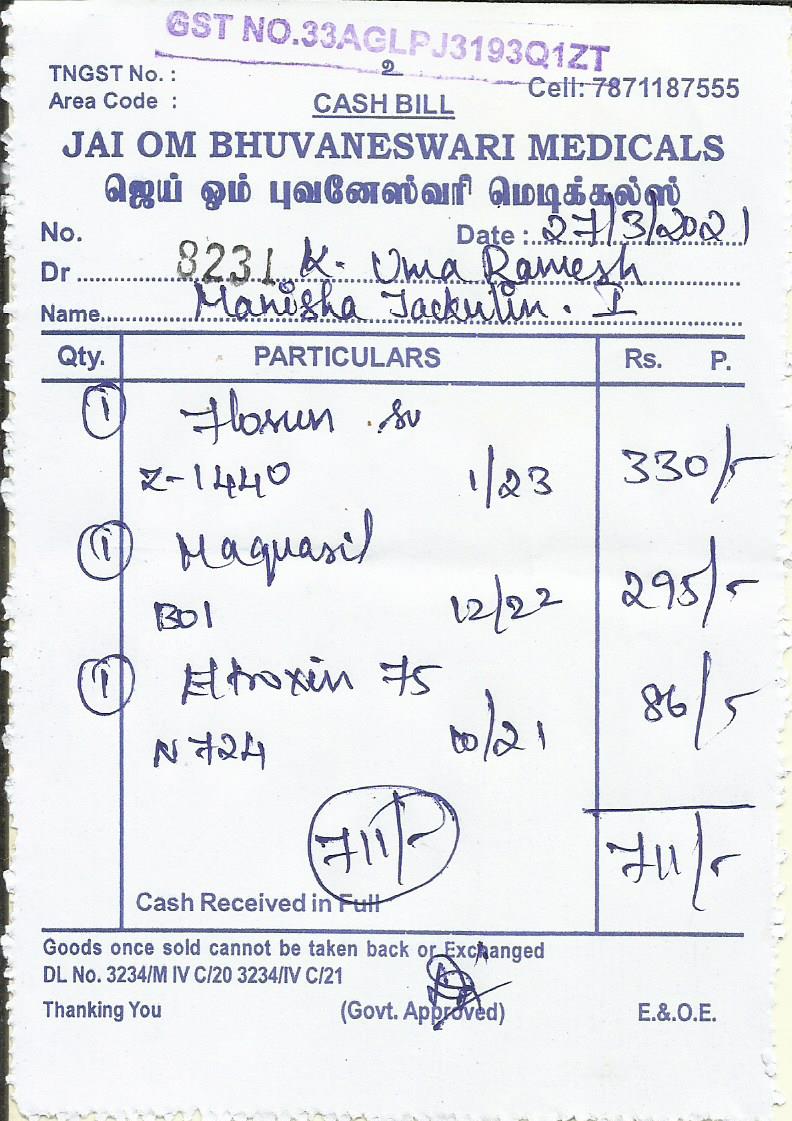 GST NO.33AGLPJ3193Q1ZT
TNGST No. :
உ
Cell: 7871187555
Area Code :
CASH BILL
JAI OM BHUVANESWARI MEDICALS
ஜெய் ஓம் புவனேஸ்வரி மெடிக்கல்ஸ்
No. Date : 27/3/2021
Dr 8231 K. Uma Ramesh
Name Manisha Jackulin. I
Qty. PARTICULARS Rs. P.
1 sv
Z-1440 1/23 330/-
1 Maquasil
B01 12/22 295/-
1 Eltroxin 75
N724 10/21 86/-
711/- 711/-
Cash Received in Full
Goods once sold cannot be taken back or Exchanged
DL No. 3234/M IV C/20 3234/IV C/21
Thanking You (Govt. Approved) E.&.O.E.